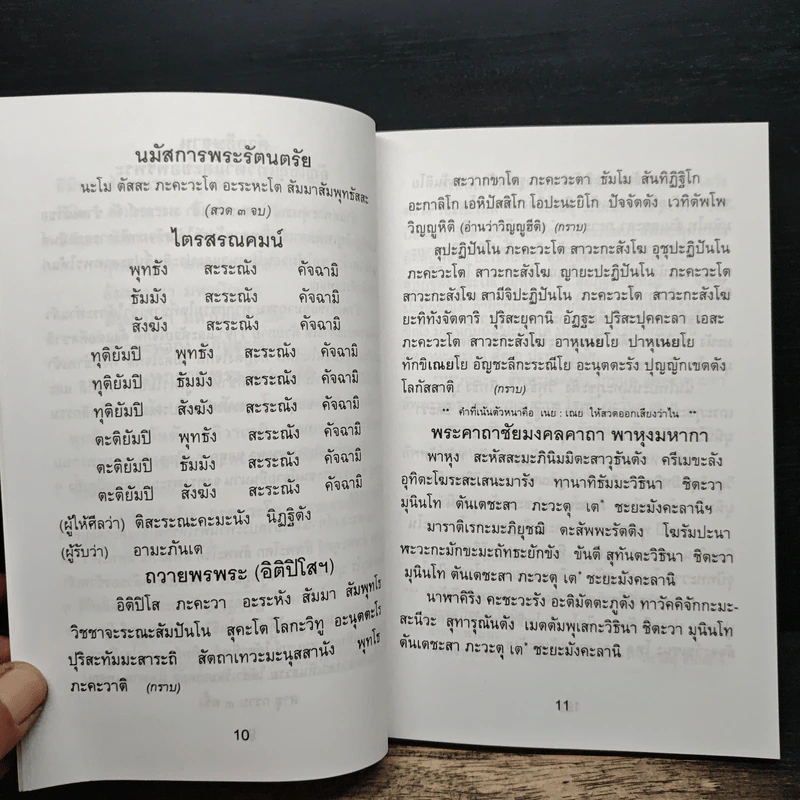 นมัสการพระรัตนตรัย
นะโม ตัสสะ ภะคะวะโต อะระหะโต สัมมาสัมพุทธัสสะ
(สวด ๓ จบ)
ไตรสรณคมน์
พุทธัง สะระณัง คัจฉามิ
ธัมมัง สะระณัง คัจฉามิ
สังฆัง สะระณัง คัจฉามิ
ทุติยัมปิ พุทธัง สะระณัง คัจฉามิ
ทุติยัมปิ ธัมมัง สะระณัง คัจฉามิ
ทุติยัมปิ สังฆัง สะระณัง คัจฉามิ
ตะติยัมปิ พุทธัง สะระณัง คัจฉามิ
ตะติยัมปิ ธัมมัง สะระณัง คัจฉามิ
ตะติยัมปิ สังฆัง สะระณัง คัจฉามิ
(ผู้ให้ศีลว่า) ติสะระณะคะมะนัง นิฏฐิตัง
(ผู้รับว่า) อามะภันเต
ถวายพรพระ (อิติปิโสฯ)
อิติปิโส ภะคะวา อะระหัง สัมมา สัมพุทโธ
วิชชาจะระณะสัมปันโน สุคะโต โลกะวิทู อะนุตตะโร
ปุริสะทัมมะสาระถิ สัตถาเทวะมะนุสสานัง พุทโธ
ภะคะวาติ (กราบ)
10
สะวากขาโต ภะคะวะตา ธัมโม สันทิฏฐิโก
อะกาลิโก เอหิปัสสิโก โอปะนะยิโก ปัจจัตตัง เวทิตัพโพ
วิญญูหิติ (อ่านว่าวิญญูฮีติ) (กราบ)
สุปะฏิปันโน ภะคะวะโต สาวะกะสังโฆ อุชุปะฏิปันโน
ภะคะวะโต สาวะกะสังโฆ ญายะปะฏิปันโน ภะคะวะโต
สาวะกะสังโฆ สามีจิปะฏิปันโน ภะคะวะโต สาวะกะสังโฆ
ยะทิทังจัตตาริ ปุริสะยุคานิ อัฏฐะ ปุริสะปุคคะลา เอสะ
ภะคะวะโต สาวะกะสังโฆ อาหุเนยโย ปาหุเนยโย
ทักขิเณยโย อัญชะลีกะระณีโย อะนุตตะรัง ปุญญักเขตตัง
โลกัสสาติ (กราบ)
** คำที่เน้นตัวหนาคือ เนย : เณย ให้สวดออกเสียงว่าใน **
พระคาถาชัยมงคลคาถา พาหุงมหากา
พาหุง สะหัสสะมะภินิมมิตะสาวุธันตัง ครีเมขะลัง
อุทิตะโฆระสะเสนะมารัง ทานาทิธัมมะวิธินา ชิตะวา
มุนินโท ตันเตชะสา ภะวะตุ เต* ชะยะมังคะลานิฯ
มาราติเรกะมะภิยุชฌิ ตะสัพพะรัตติง โฆรัมปะนา
ฬะวะกะมักขะมะถัทธะยักขัง ขันตี สุทันตะวิธินา ชิตะวา
มุนินโท ตันเตชะสา ภะวะตุ เต* ชะยะมังคะลานิ
นาฬาคิริง คะชะวะรัง อะติมัตตะภูตัง ทาวัคคิจักกะมะ-
สะนีวะ สุทารุณันตัง เมตตัมพุเสกะวิธินา ชิตะวา มุนินโท
ตันเตชะสา ภะวะตุ เต* ชะยะมังคะลานิ
11